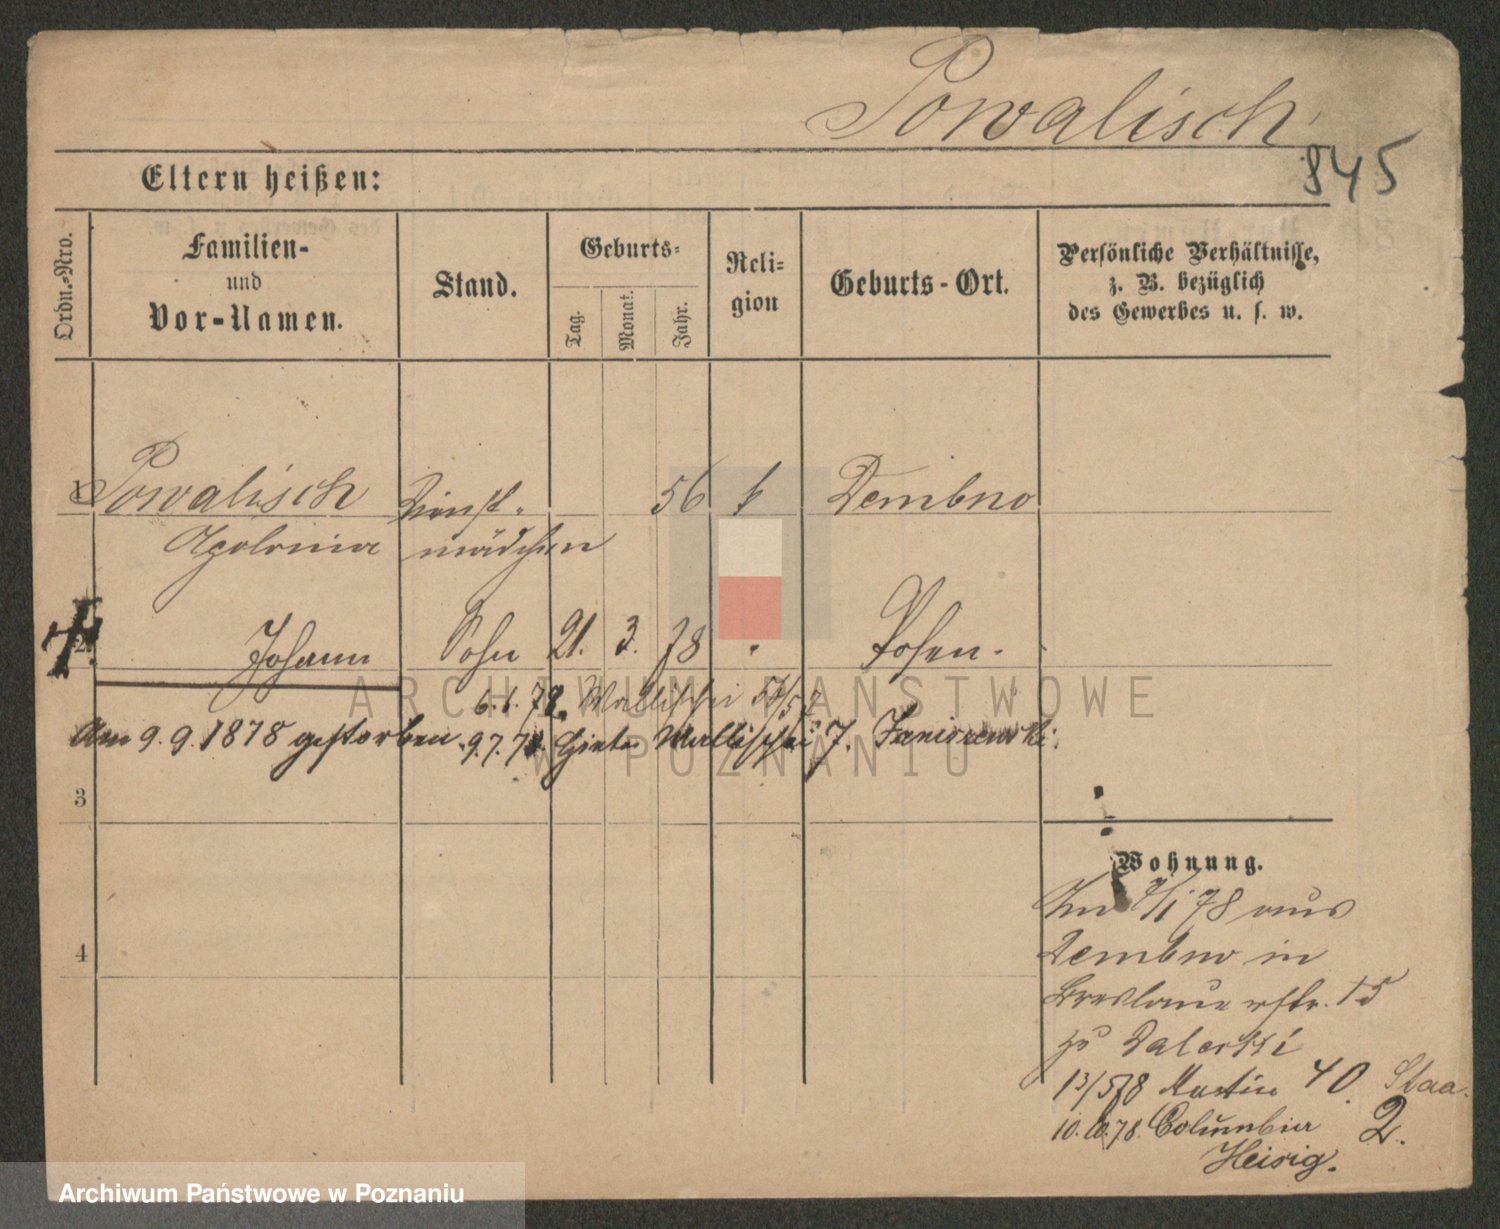 Powalisch
845
Eltern heißen:
Ordn.-Nro.
Familien-
und
Vor-Namen.
Stand.
Geburts-
Tag.
Monat.
Jahr.
Reli-
gion
Geburts-Ort.
Persönliche Verhältnisse,
z. B. bezüglich
des Gewerbes u. s. w.
1 Powalisch Dienst- 56 k Dembno
Apolonia mädchen
2 Johann Sohn 21. 3. 78 " Posen.
6. 1. 79. Wallischei
Am 9. 9. 1878 gestorben. 9. 7. 79. Wallischei 7. Janiszewski.
3
4
Wohnung.
Am 7/1 78 aus
Dembno in
Breslauerstr. 15
zu Dalerski
13/5 78 Martin 40. Staa.
10. 10. 78. Columbia 2.
Heisig.
ARCHIWUM PAŃSTWOWE
W POZNANIU
Archiwum Państwowe w Poznaniu